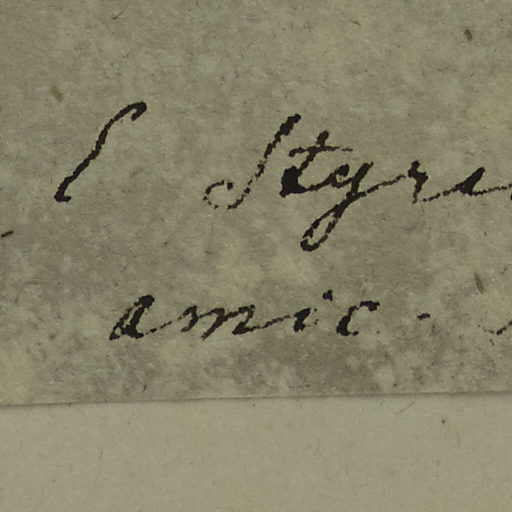 E Styri
amic.